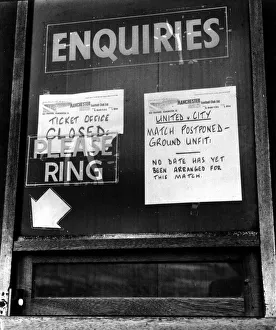 ENQUIRIES
MANCHESTER
TICKET OFFICE
CLOSED.
PLEASE
RING
MANCHESTER
UNITED v. CITY
MATCH POSTPONED-
GROUND UNFIT:
NO DATE HAS YET
BEEN ARRANGED FOR
THIS MATCH.